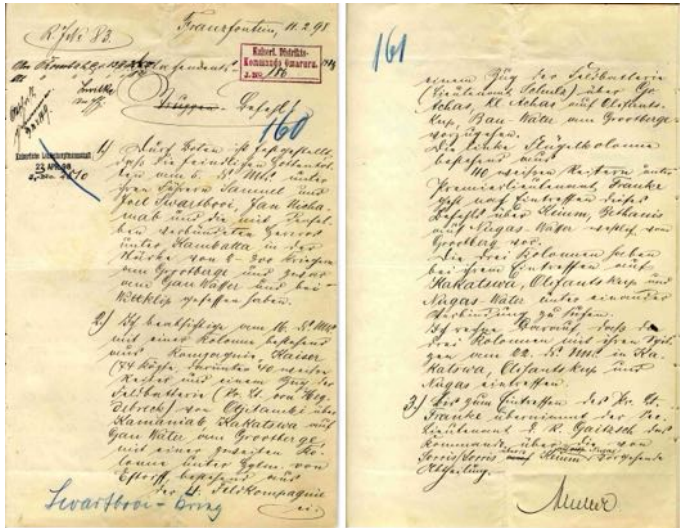 R. J. No 83.
Franzfontein, 11.2.98
Kaiserl. Distrikts-
Kommando Omaruru.
J. No. 186
Truppen-Befehl
160
Kaiserliche Landeshauptmannschaft
22 APR. 98
1.) Durch Boten ist festgestellt,
daß die feindlichen Hottentot-
ten am 6. ds. Mts. unter
ihren Führern Samuel und
Joel Swartbooi, Jan Uicha-
mab und die mit densel-
ben verbündeten Hereros
unter Kambatta in der
Stärke von 2-300 Kriegern
am Grootberge und zwar
am Gau Water und bei
Wittklip gesessen haben.
2.) Ich beabsichtige am 16. ds. Mts.
mit einer Kolonne bestehend
aus Kompagnie Kaiser
(74 Köpfe, darunter 40 weißen
Reiter und einem Zug der
Feldbatterie (Pr. Lt. von
) von Otjitambi über
Kamaniab, Kakatswa auf
Gau Water am Grootberge,
mit einer zweiten Ko-
lonne unter Hptm. von
Estorff, bestehend aus
der 4. Feldkompagnie
Swartbooi-Krieg
161
einem Zug der Feldbatterie
(Lieutenant) über Gr.
Achas, Kl. Achas auf Olifants-
kup, Bau-Water am Grootberge
vorzugehen.
Die linke Flügelkolonne
bestehend aus
110 weißen Reitern unter
Premierlieutenant Franke
geht nach Eintreffen dieses
Befehls über, Bethanis
auf Nugas-Water westlich von
Grootberg vor.
Die drei Kolonnen haben
bei ihrem Eintreffen auf
Kakatswa, Olifantskup und
Nugas-Water unter einander
Verbindung zu suchen.
Ich rechne darauf, daß die
drei Kolonnen mit ihren Spit-
zen am 22. ds. Mts. in Ka-
katswa, Olifantskup und
Nugas eintreffen.
3.) Bis zum Eintreffen des Pr. Lt.
Franke übernimmt der Sec.
Lieutenant d. R. Gaitzsch das
Kommando über die von
Sorris Sorris vorgehende
Abtheilung.